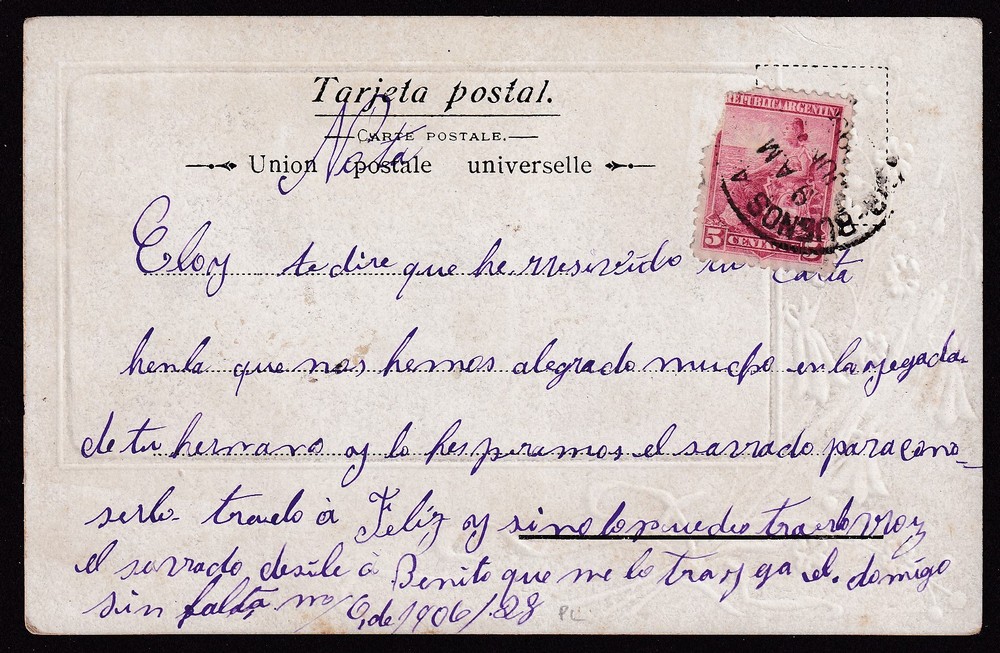 Tarjeta postal.
CARTE POSTALE.
Nota
Union postale universelle
REPUBLICA ARGENTIN
BUENOS A
9 AM
5 CENT
Eloy te dire que he rresevido tu Carta
henla que nos hemos alegrado mucho en la yegada
de tu hermano y lo hesperamos el savado para cono-
serlo traelo à Feliz y si no lo puedes traerlo voy
el savado desile à Benito que me lo trayga el domigo
sin falta 6 de 1906/28
PL